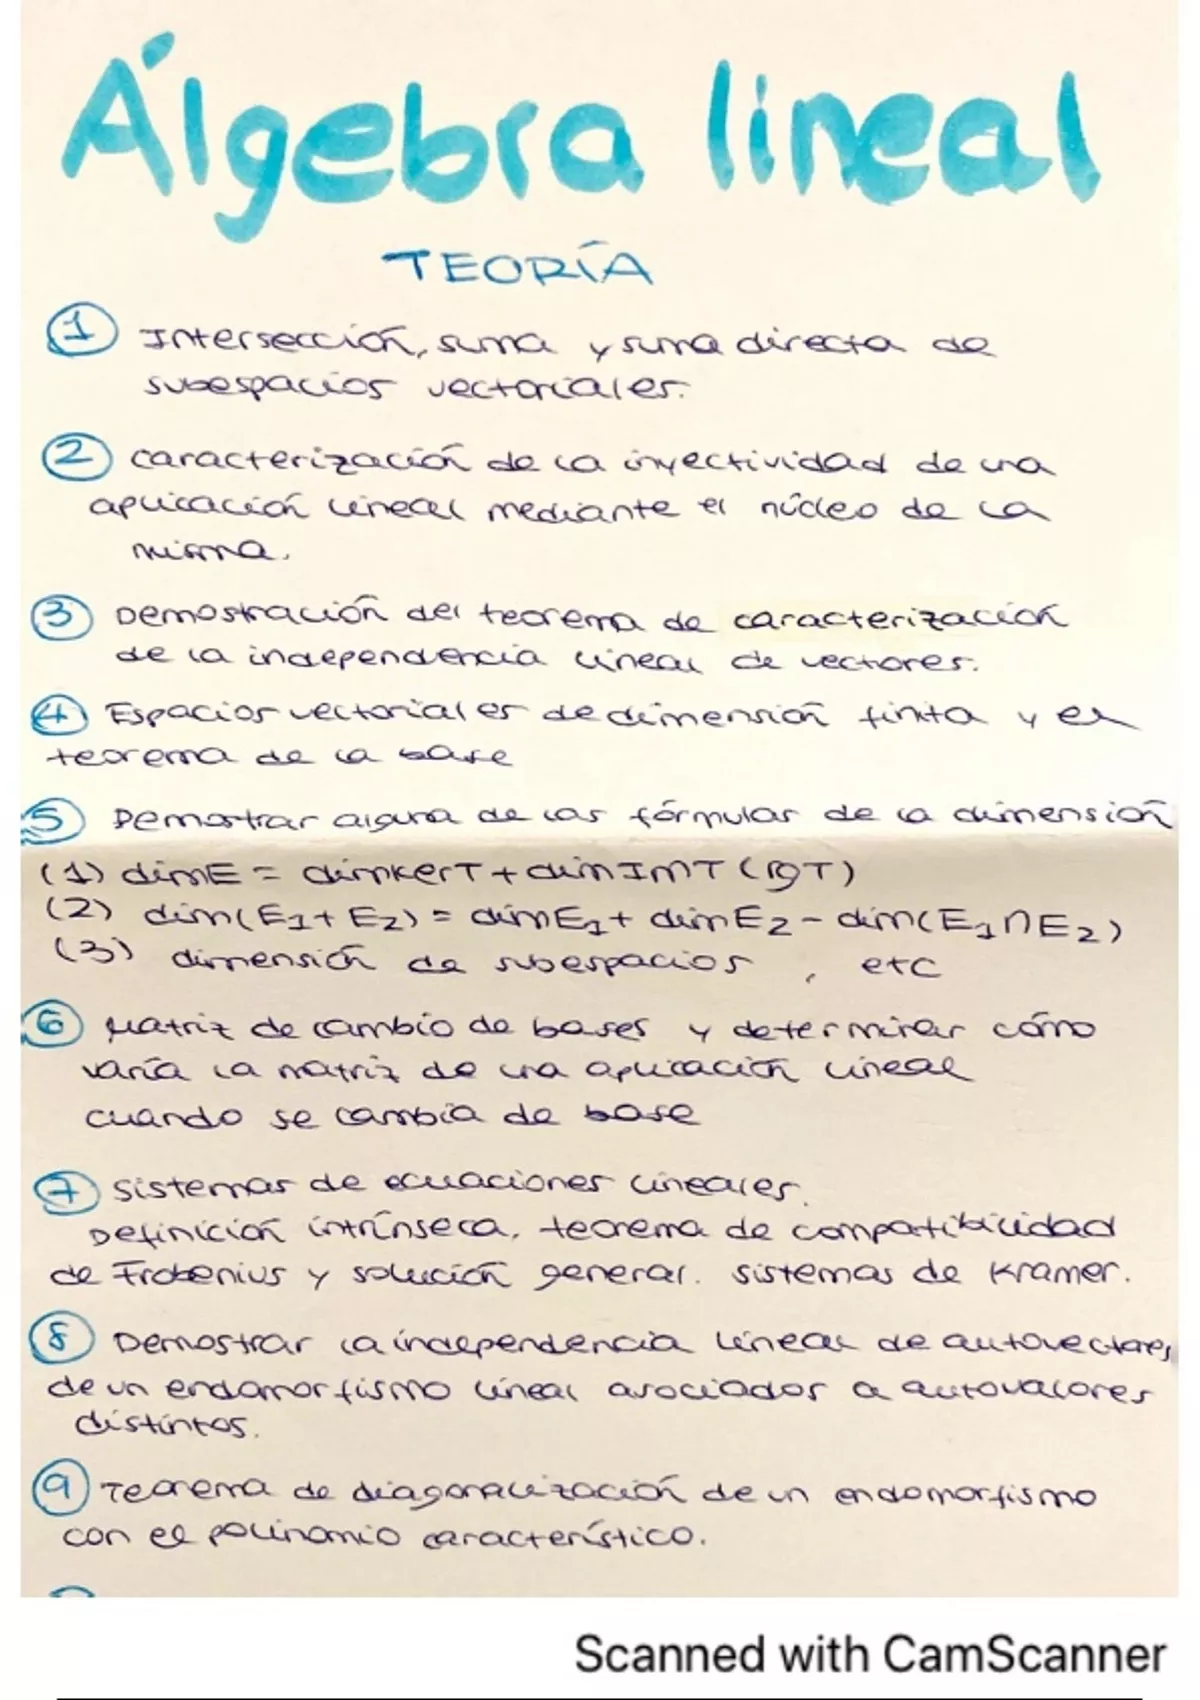 Álgebra lineal
TEORÍA
1 Intersección, suma y suma directa de
subespacios vectoriales.
2 caracterización de la inyectividad de una
aplicación lineal mediante el núcleo de la
misma.
3 Demostración del teorema de caracterización
de la independencia lineal de vectores.
4 Espacios vectoriales de dimensión finita y el
teorema de la base
5 Demostrar alguna de las fórmulas de la dimensión
(1) dimE = dimkerT + dimImT (rgT)
(2) dim(E1 + E2) = dimE1 + dimE2 - dim(E1∩E2)
(3) dimensión de subespacios, etc
6 Matriz de cambio de bases y determinar cómo
varía la matriz de una aplicación lineal
cuando se cambia de base
7 Sistemas de ecuaciones lineales.
Definición intrínseca, teorema de compatibilidad
de Frobenius y solución general. sistemas de Kramer.
8 Demostrar la independencia lineal de autovectores
de un endomorfismo lineal asociados a autovalores
distintos.
9 Teorema de diagonalización de un endomorfismo
con el polinomio característico.
Scanned with CamScanner